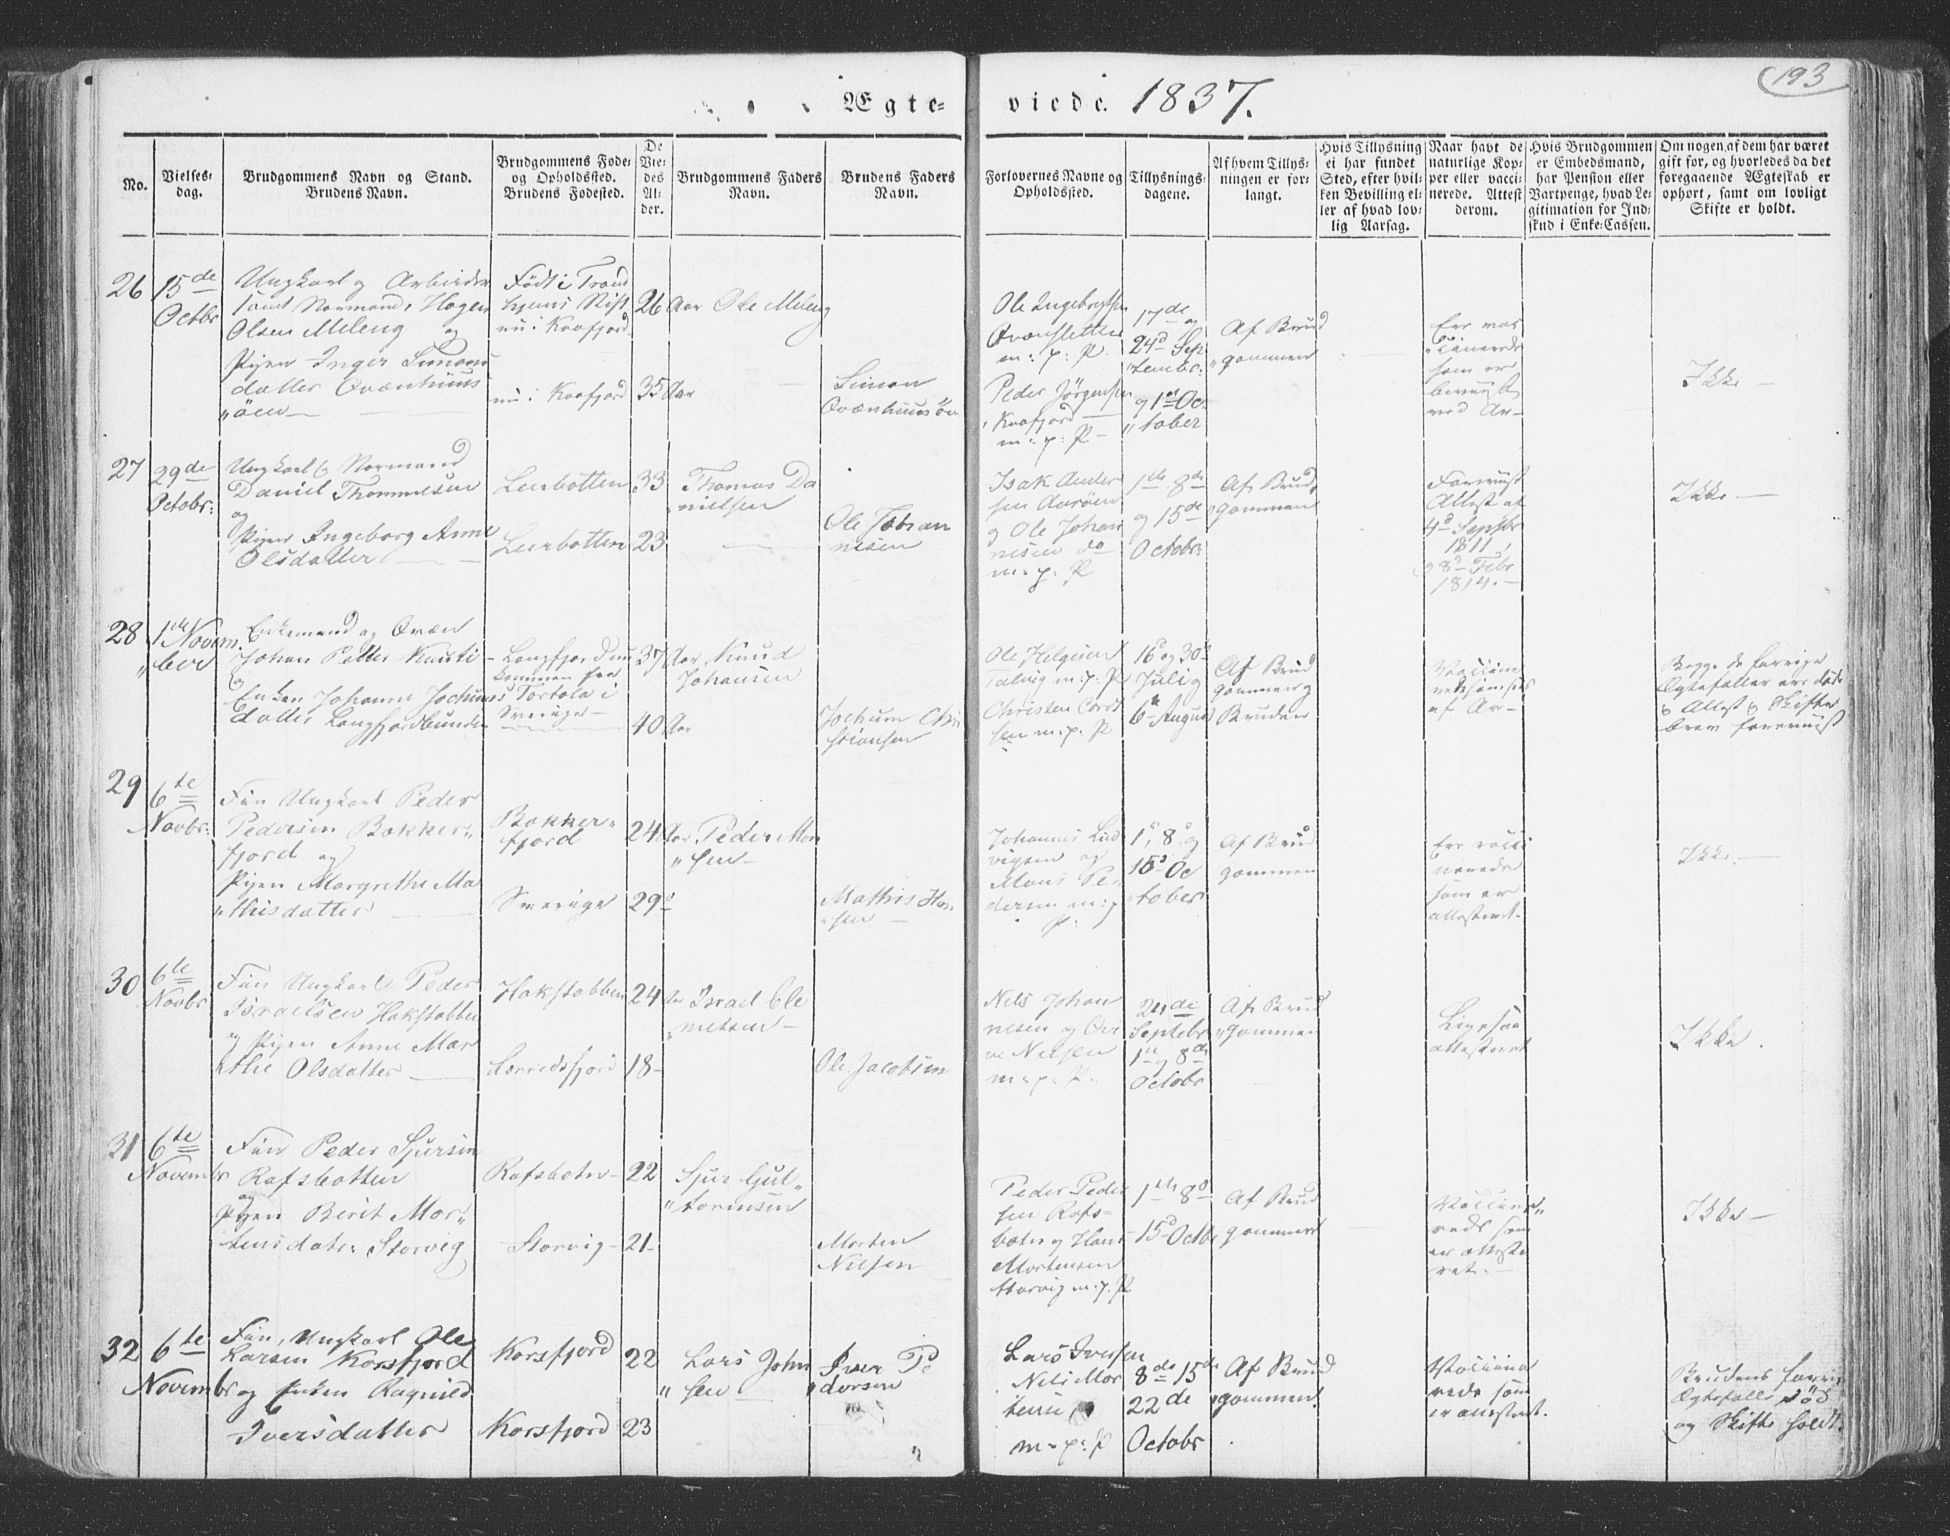 193
Ægte= viede. 1837.
No.
Vielses=
dag.
Brudgommens Navn og Stand.
Brudens Navn.
Brudgommens Føde=
og Opholdssted.
Brudens Fødested.
De
Vie=
des
Al=
der.
Brudgommens Faders
Navn.
Brudens Faders
Navn.
Forlovernes Navne og
Opholdssted.
Tillysnings=
dagene.
Af hvem Tillys=
ningen er for=
langt.
Hvis Tillysning
ei har fundet
Sted, efter hvil=
ken Bevilling el=
ler af hvad lov=
lig Aarsag.
Naar havt de
naturlige Kop=
per eller vacci=
nerede. Attest
derom.
Hvis Brudgommen
er Embedsmand,
har Pension eller
Vartpenge, hvad Le=
gitimation for Ind=
skud i Enke=Cassen.
Om nogen af dem har været
gift før, og hvorledes da det
foregaaende Ægteskab er
ophørt, samt om lovligt
Skifte er holdt.
26
15de
Octbr
Ungkarl og Arbeider
samt Normand, Hagen
Olsen Meleng og
Pigen Inger Simons
datter Qvænhuus
"øen
Født i Trond
hjems Stift
nu i Kaafjord
nu i Kaafjord
26 Aar
35 Aar
Ole Meleng
Simon
Qvænhuusøen
Ole Ingebrigtsen
Qvænsletten
m: p: P.
Peder Jørgensen
i Kaafjord
m: p: P
17de og
24d Sep
"tembr:
og 1ste Oc
"tober
Af Brud
"gommen
Ere vac
"cinerede
som er
beviist
ved At-
Ikke
27
29de
Octobr:
Ungkarl & Normand
Daniel Thommesen
og
Pigen Ingeborg Anne
Olsdatter
Leerbotten
Leerbotten
33
23
Thomas Da
"nielsen
Ole Johan
nesen
Isak Ander
sen Aarøen
og Ole Johan
nesen do
m: p: P
1ste 8de
og 15de
Octobr:
Af Brud
"gommen
Foreviist
Attest af
4d Septbr
1811,
og 8d Febr
1814.
Ikke
28
1ste Novem
"ber
Enkemand og Qvæn
Johan Petter Knuti
&
Enken Johanne Jochums
datter Langfjordbunden
Langfjord nu
kommen fra
Tortola i
Sverige
37 Aar
40 Aar
Knud
Johansen
Jochum Chri
stiansen
Ole Helgesen
Talvig m: p: P
Christen Cordt
sen m: p. P
16d og 30d
Juli og
6te August
Af Brud
gommen og
Bruden
Vaccine
rede
af At-
Begge de forrige
Ægtefæller ere døde
& Attest & Skifte
brev foreviist
29
6te
Novbr:
Fin Ungkarl Peder
Pedersen Bokker=
fjord og
Pigen Margrethe Ma
"thisdatter
Bokker=
fjord
Sverige
24 Aar
29 d
Peder Mon
"sen
Mathis Han
"sen
Johannes Lud
vigsen og
Mons Pe
dersen m: p
P:
1, 8 og
15d Oc
tober
Af Brud
gommen
Ere vacci
nerede
som er
attesteret.
Ikke.
30
6te
Novbr
Fin Ungkarl Peder
Israelsen Hakstabben
og Pigen Anne Mar
the Olsdatter
Hakstabben
Lerredsfjord
24 Aar
18
Israel Cle
"metsen
Ole Jacobsen
Nils Johan
nesen og Ole
Nielsen
m: p: P.
24de
Septebr
1te og 8de
Octobr
Af Brud
"gommen
Ligesaa
attesteret
Ikke.
31
6te
Novembr
Fin Peder Sjursen
Rafsbotten
og
Pigen Berit Mor=
tensdatr: Storvig
Rafsboten
Storvig
22
21
Sjur Gul=
"tormsen
Morten
Nilsen
Peder Peder
sen Rafs=
boten og Hans
Mortensen
Storvig m: p. P
1ste 8d
15d Octbr
Af Brud
gommen
Vaccine=
rede som
er atteste
ret.
Ikke
32
6te
Novembr
Fin, Ungkarl Ole
Larsen Korsfjord
og Enken Ragnild
Iversdatter
Korsfjord
Korsfjord
22
23
Lars John
"sen
Iver Pe
"dersen
Lars Iversen
Nils Mor
tensen
m: p: P
8de 15de
22de
Octobr
Af Brud
"gommen.
Vaccine
rede som
er attesteret.
Brudens forrige
Ægtefælle død
og Skifte holdt.